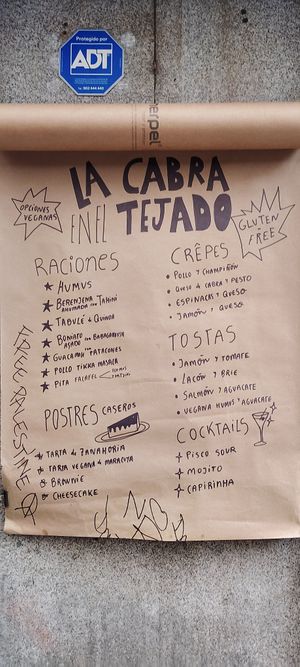 Protegido por
ADT
902 444 440
OPCIONES
VEGANAS
LA CABRA
EN EL TEJADO
GLUTEN
FREE
RACIONES
HUMUS
BERENJENA
AHUMADA CON TAHINI
TABULÉ de QUINOA
BONIATO CON BABAGANOUSH
ASADO
GUACAMOLE CON PATACONES
POLLO TIKKA MASALA
PITA FALAFEL
POSTRES CASEROS
TARTA de ZANAHORIA
TARTA VEGANA de MARACUYA
BROWNIE
CHEESECAKE
CRÊPES
POLLO Y CHAMPIÑÓN
QUESO de CABRA y PESTO
ESPINACAS y QUESO
JAMÓN y QUESO
TOSTAS
JAMÓN Y TOMATE
LACÓN Y BRIE
SALMÓN Y AGUACATE
VEGANA HUMUS Y AGUACATE
COCKTAILS
PISCO SOUR
MOJITO
CAPIRINHA
PALESTINE